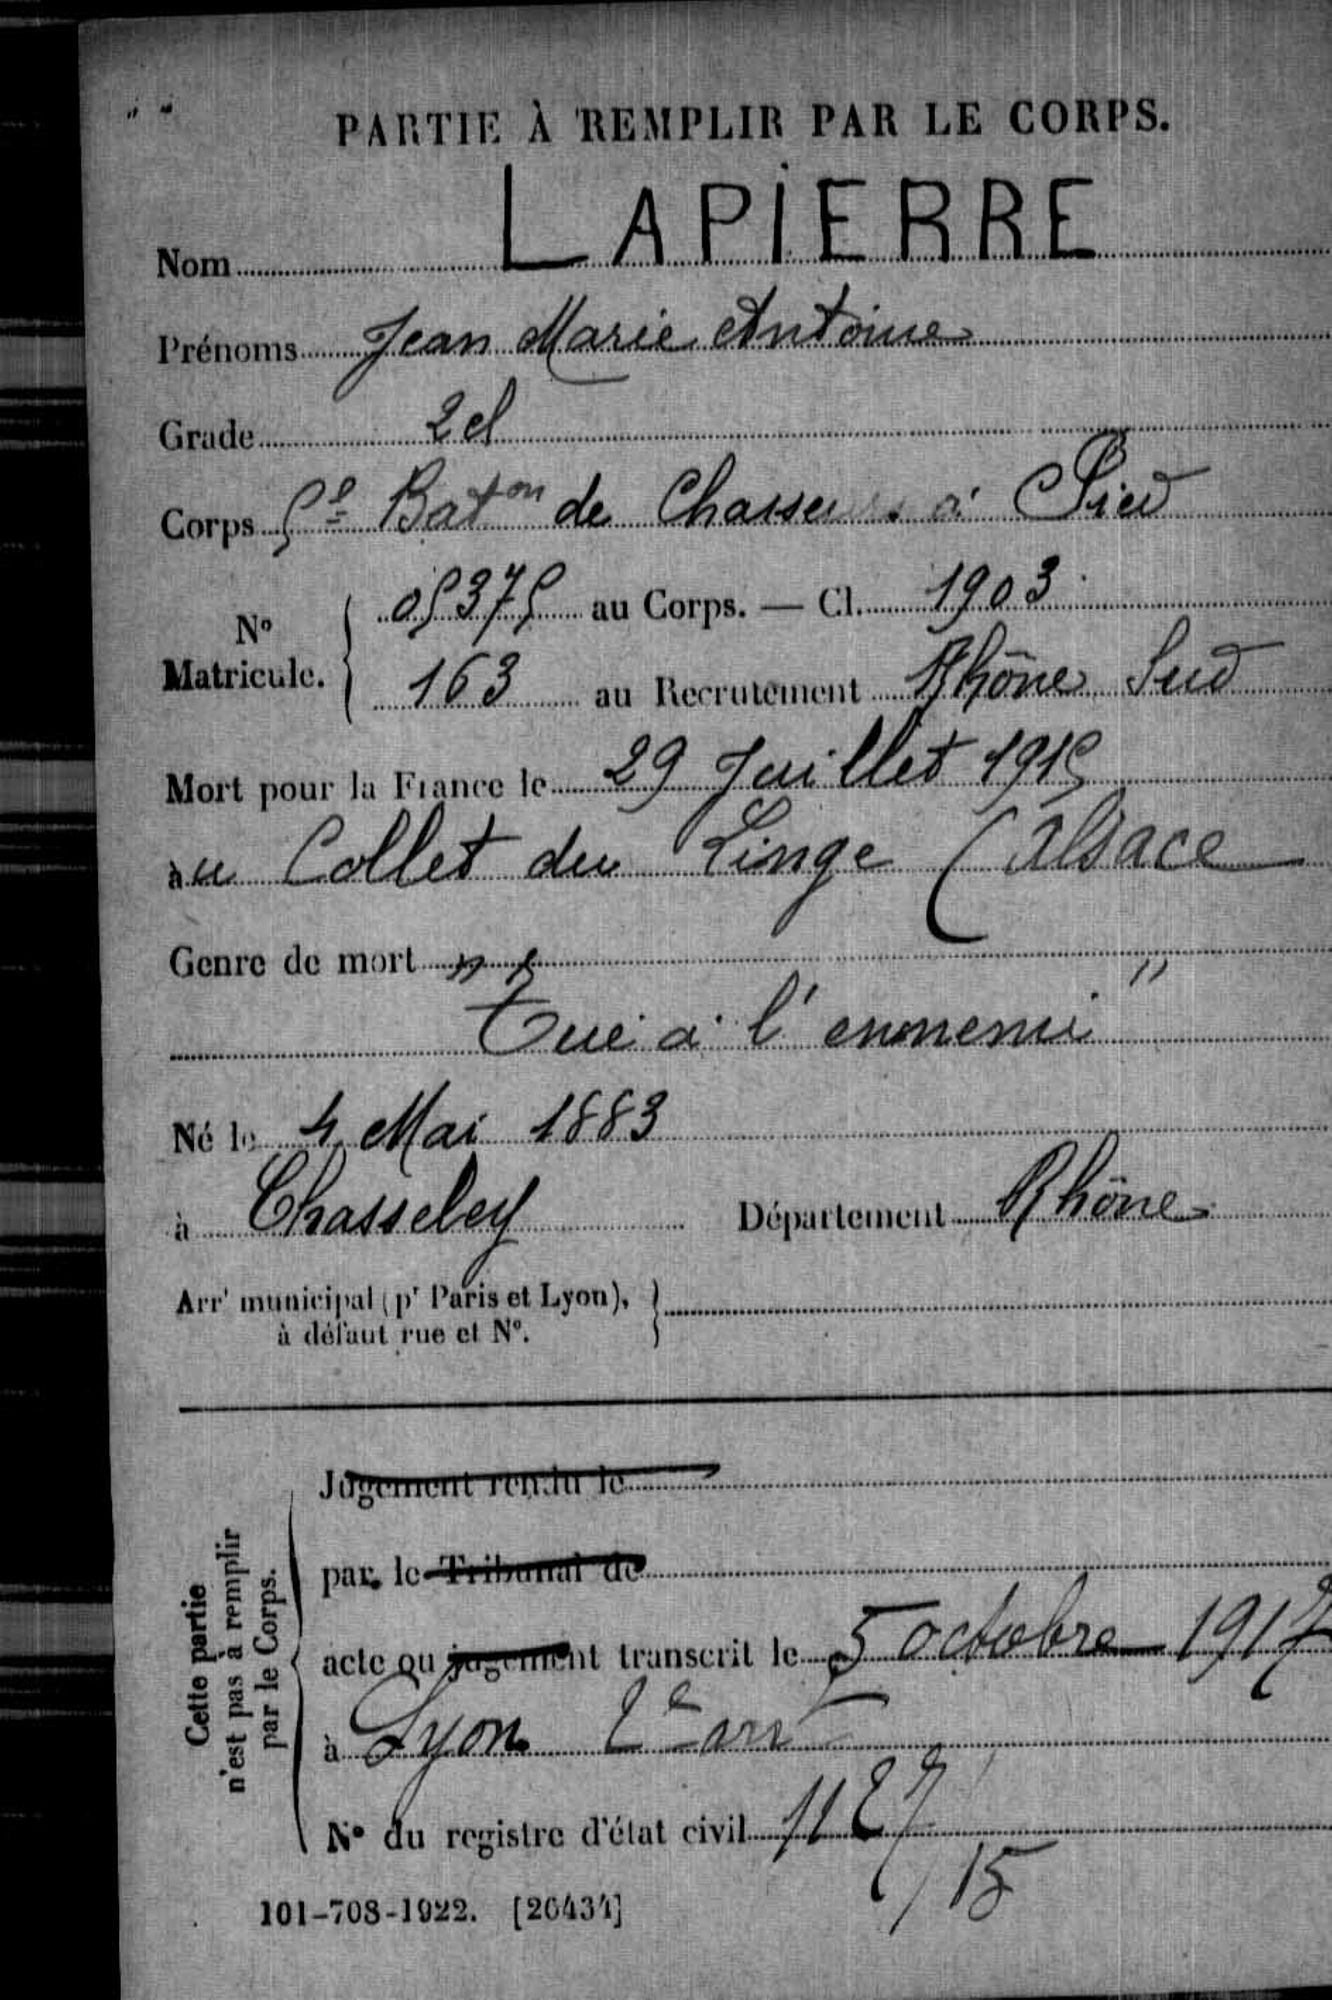 PARTIE À REMPLIR PAR LE CORPS.
Nom LAPIERRE
Prénoms Jean Marie Antoine
Grade 2 cl
Corps 5e Baton de Chasseurs à Pied
No Matricule. 05375 au Corps. — Cl. 1903
163 au Recrutement Rhône Sud
Mort pour la France le 29 Juillet 1915
au Collet du Linge (Alsace
Genre de mort "
Tué à l'ennemi "
Né le 4 Mai 1883
à Chasseley Département Rhône
Arrt municipal (pr Paris et Lyon),
à défaut rue et No.
Cette partie n'est pas à remplir par le Corps.
Jugement rendu le
par le Tribunal de
acte ou jugement transcrit le 5 octobre 1917
à Lyon 2e arrt
No du registre d'état civil 1127
/15
101-708-1922. [26434]